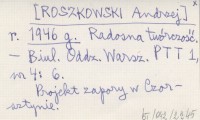 [ROSZKOWSKI Andrzej]
r. 1946 g. Radosna twórczość.
– Biul. Oddz. Warsz. PTT 1,
nr 4: 6.
Projekt zapory w Czor-
sztynie.